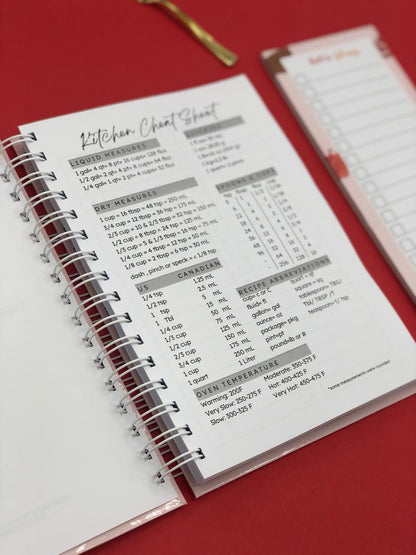 Kitchen Cheat Sheet
LIQUID MEASURES
1 gal= 4 qt= 8 pt= 16 cups= 128 floz
1/2 gal= 2 qt= 4 pt= 8 cups= 64 floz
1/4 gal= 1 qt= 2 pt= 4 cups= 32 floz
DRY MEASURES
1 cup = 16 tbsp = 48 tsp = 250 mL
3/4 cup = 12 tbsp = 36 tsp = 175 mL
2/3 cup = 10 & 2/3 tbsp = 32 tsp = 150 mL
1/2 cup = 8 tbsp = 24 tsp = 125 mL
1/3 cup = 5 & 1/3 tbsp = 16 tsp = 75 mL
1/4 cup = 4 tbsp = 12 tsp = 50 mL
1/8 cup = 2 tbsp = 6 tsp = 30 mL
dash , pinch or speck = < 1/8 tsp
SPOONS & CUPS
tsp tbsp floz cup
US CANADIAN
1/4 tsp 1.25 mL
1/2 tsp 2.5 mL
1 tsp 5 mL
1 Tbl 15 mL
1/4 cup 50 mL
1/3 cup 75 mL
1/2 cup 125 mL
2/3 cup 150 mL
3/4 cup 175 mL
1 cup 250 mL
1 quart 1 Liter
RECIPE ABBREVIATIONS
cup= c or C
fluid= fl
gallon= gal
ounce= oz
package= pkg
pint=pt
pound=lb or #
quart = qt
square = sq
tablespoon= TBL/
TB/ TBSP /T
teaspoon= t/ tsp
OVEN TEMPERATURE
Warming: 200F
Very Slow: 250-275 F
Slow: 300-325 F
Moderate: 350-375 F
Hot: 400-425 F
Very Hot: 450-475 F
*some measurements were rounded